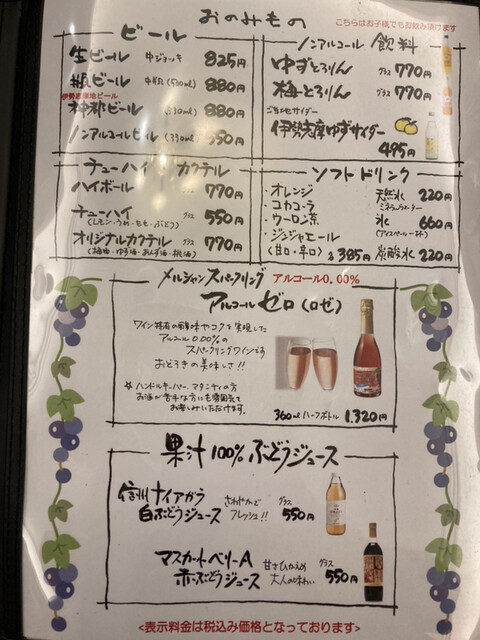 おのみもの
ビール
生ビール 中ジョッキ 825円
瓶ビール 中瓶(500ml) 880円
伊勢志摩地ビール
神都ビール (330ml) 880円
ノンアルコールビール (334ml) 550円
こちらはお子様でもお飲み頂けます
ノンアルコール 飲料
ゆずとろりん グラス 770円
梅とろりん グラス 770円
ご当地サイダー
伊勢志摩ゆずサイダー
495円
チューハイ&カクテル
ハイボール グラス 770円
チューハイ グラス 550円
(レモン・うめ・もも・ぶどう)
オリジナルカクテル グラス 770円
(梅酒・ゆず酒・あんず酒・桃酒)
ソフトドリンク
・オレンジ
・コカコーラ
・ウーロン茶
・ジンジャエール
(甘口・辛口) 各385円
天然水 220円
ミネラルウォーター
氷 660円
(アイスペール一杯)
炭酸水 220円
メルシャンスパークリング アルコール0.00%
アルコールゼロ(ロゼ)
ワイン特有の風味やコクを実現した
アルコール0.00%の
スパークリングワインです
おどろきの美味しさ!!
※ハンドルキーパー、マタニティの方
お酒が苦手な方にも雰囲気で
お楽しみいただけます。
360mlハーフボトル 1.320円
果汁100%ぶどうジュース
信州ナイアガラ
白ぶどうジュース
さわやかで
フレッシュ!!
グラス
550円
マスカットベリーA
赤ぶどうジュース
甘さひかえめ
大人の味わい
グラス
550円
<表示料金は税込み価格となっております>